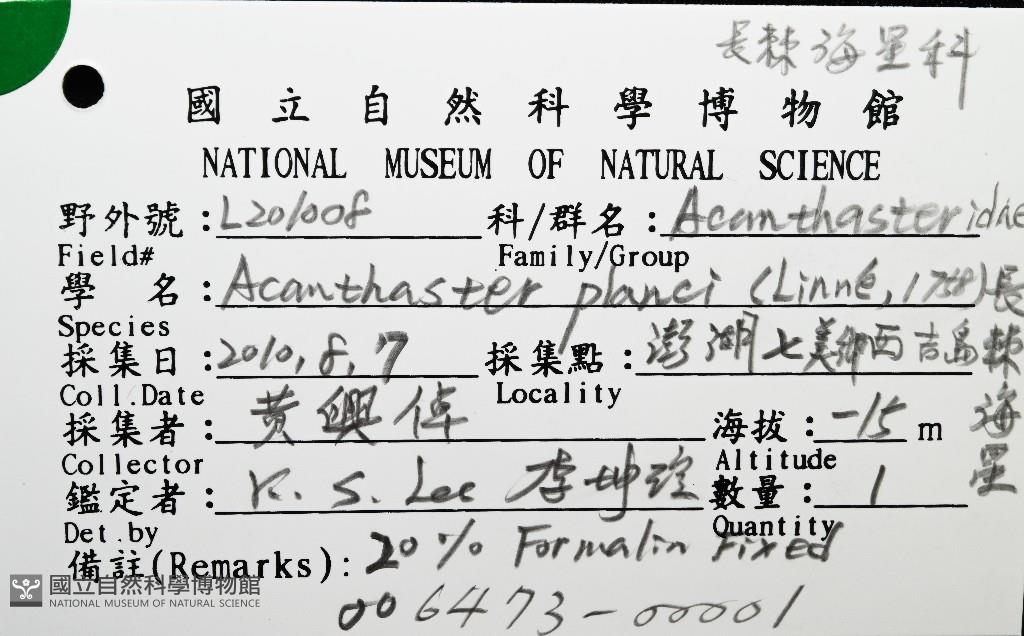 長棘海星科
國立自然科學博物館
NATIONAL MUSEUM OF NATURAL SCIENCE
野外號：L201008 科/群名：Acanthasteridae
Field# Family/Group
學名：Acanthaster planci (Linné, 1758) 長棘海星
Species
採集日：2010, 8, 7 採集點：澎湖七美鄉西吉島
Coll.Date Locality
採集者：黃興倬 海拔：-15 m
Collector Altitude
鑑定者：K. S. Lee 李坤瑄 數量：1
Det.by Quantity
備註(Remarks)：20% Formalin Fixed
006473-00001
國立自然科學博物館
NATIONAL MUSEUM OF NATURAL SCIENCE